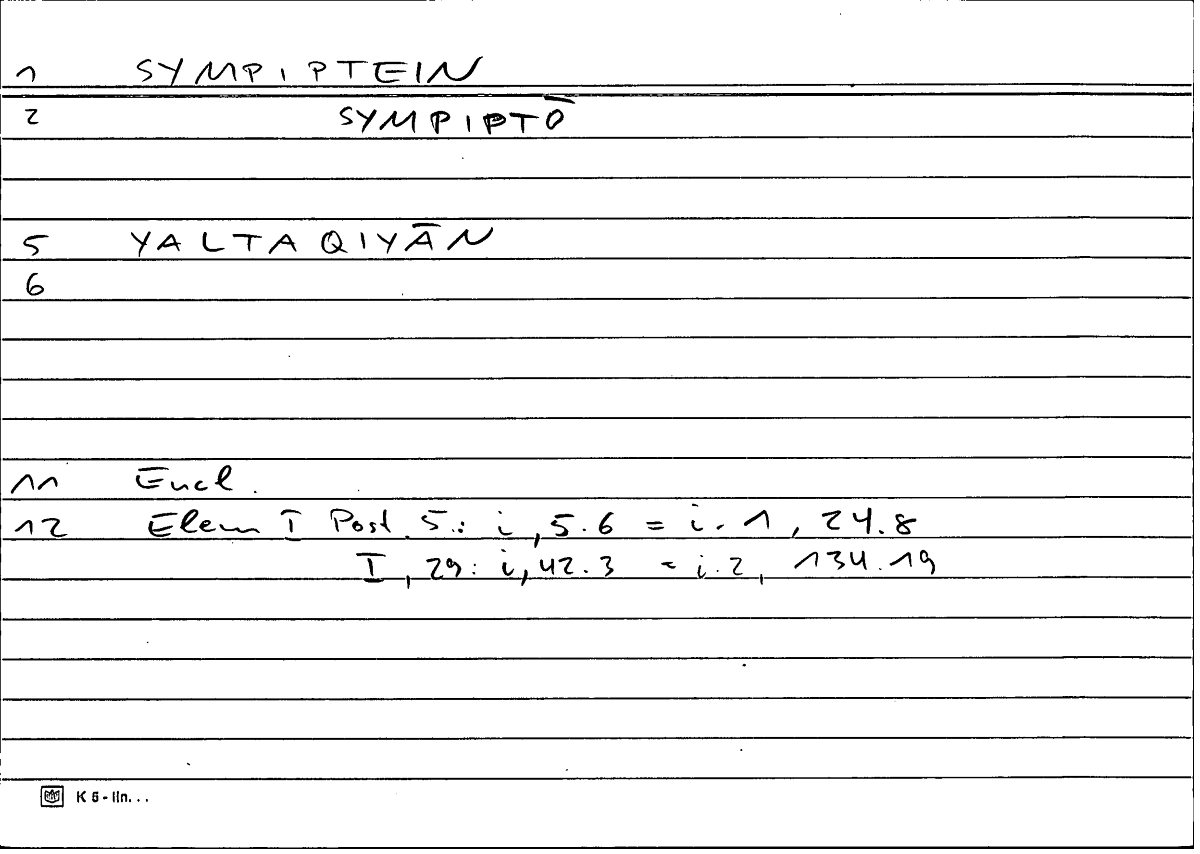 1 SYMPIPTEIN
2 SYMPIPTŌ
5 YALTAQIYĀN
6
11 Eucl.
12 Elem I Post. 5.: i, 5.6 = i.1, 24.8
I, 29: i, 42.3 = i.2, 134.19
K 5 - lin...